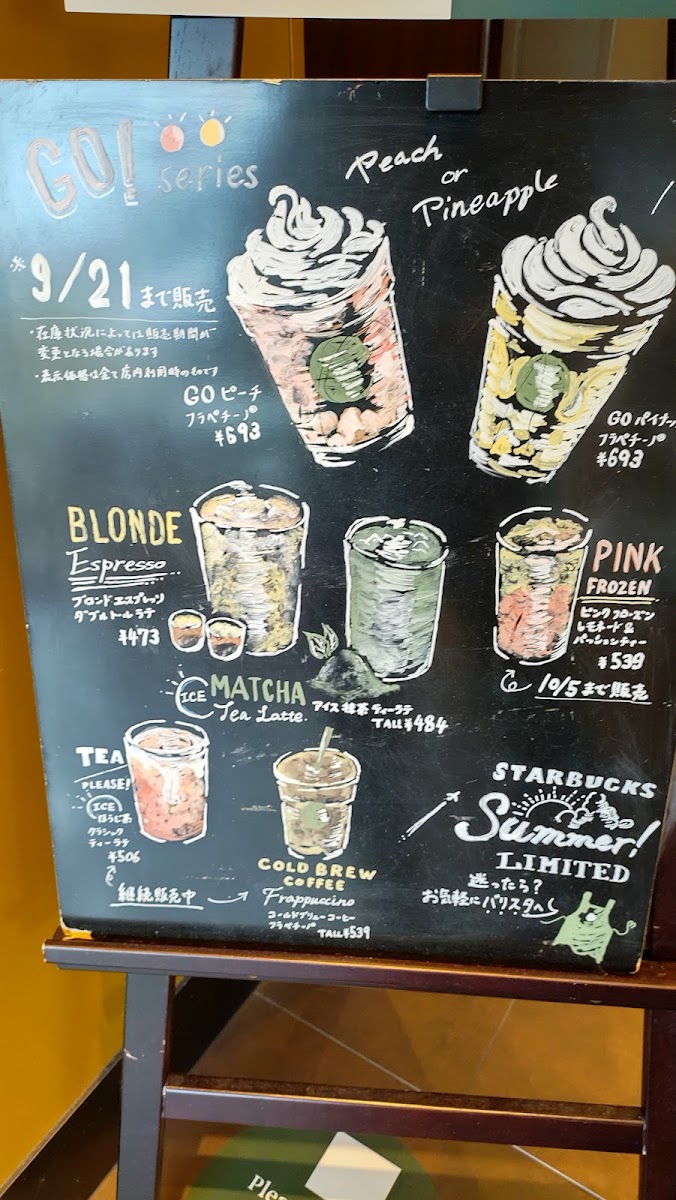 GO! series
Peach
or
Pineapple
※9/21まで販売
・在庫状況によっては販売期間が
変更となる場合があります
・表示価格は全て店内利用時のものです
GO ピーチ
フラペチーノ®
¥693
GO パイナッ
フラペチーノ®
¥693
BLONDE
Espresso
ブロンドエスプレッソ
ダブルトールラテ
¥473
PINK
FROZEN
ピンクフローズン
レモネード&
パッションティー
¥539
10/5まで販売
ICE MATCHA
Tea Latte
アイス抹茶ティーラテ
TALL ¥484
TEA
PLEASE!
ICE
ほうじ茶
クラシック
ティーラテ
¥506
継続販売中
COLD BREW
COFFEE
Frappuccino
コールドブリューコーヒー
フラペチーノ®
TALL ¥539
STARBUCKS
Summer!
LIMITED
迷ったら?
お気軽にバリスタへ
Plea